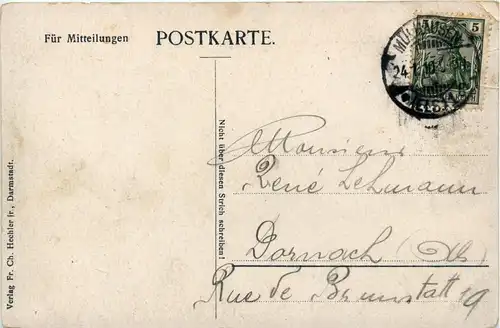 Für Mitteilungen
POSTKARTE.
5
MÜLHAUSEN
24.
Nicht über diesen Strich schreiben!
Verlag Fr. Ch. Hechler jr., Darmstadt.
Monsieur
René Lehmann
Dornach (Als)
Rue de Brunstatt 19